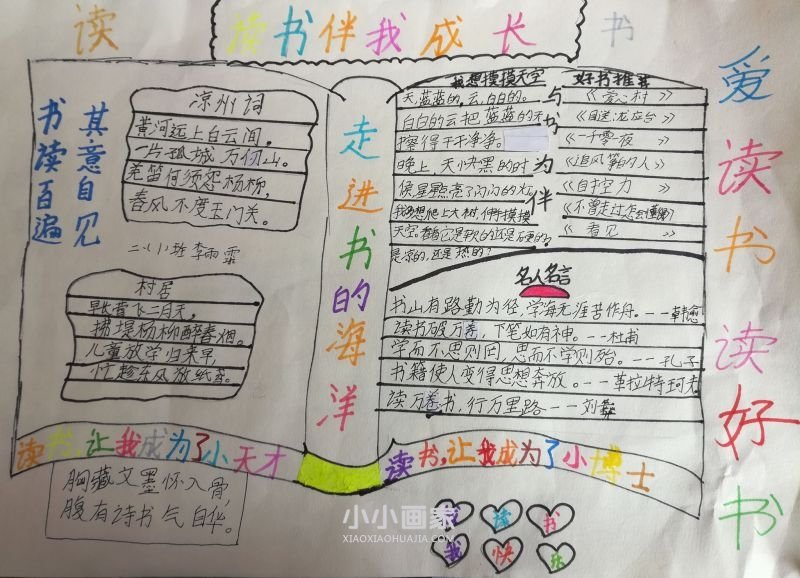 读
读书伴我成长
书
书读百遍
其意自见
凉州词
黄河远上白云间，
一片孤城万仞山。
羌笛何须怨杨柳，
春风不度玉门关。
村居
草长莺飞二月天，
拂堤杨柳醉春烟。
儿童放学归来早，
忙趁东风放纸鸢。
走进书的海洋
我想摸摸天空
天，蓝蓝的，云，白白的。
白白的云把蓝蓝的天
擦得干干净净。
晚上，天快黑的时
候星星点亮了闪闪的灯
我多想爬上大树伸手摸摸
是凉的，还是热的？
与书为伴
好书推荐
《爱心树》
《目送龙应台》
《一千零一夜》
《追风筝的人》
《自控力》
《看见》
名人名言
书山有路勤为径，学海无涯苦作舟。——韩愈
读书破万卷，下笔如有神。——杜甫
学而不思则罔，思而不学则殆。——孔子
书籍使人变得思想奔放。——革拉特珂夫
读万卷书，行万里路——刘彝
读书，让我成为了小天才
读书，让我成为了小博士
胸藏文墨怀入骨，
腹有诗书气自华。
爱读书
读好书
读书
我快乐
小小画家
XIAOXIAOHUAJIA.COM